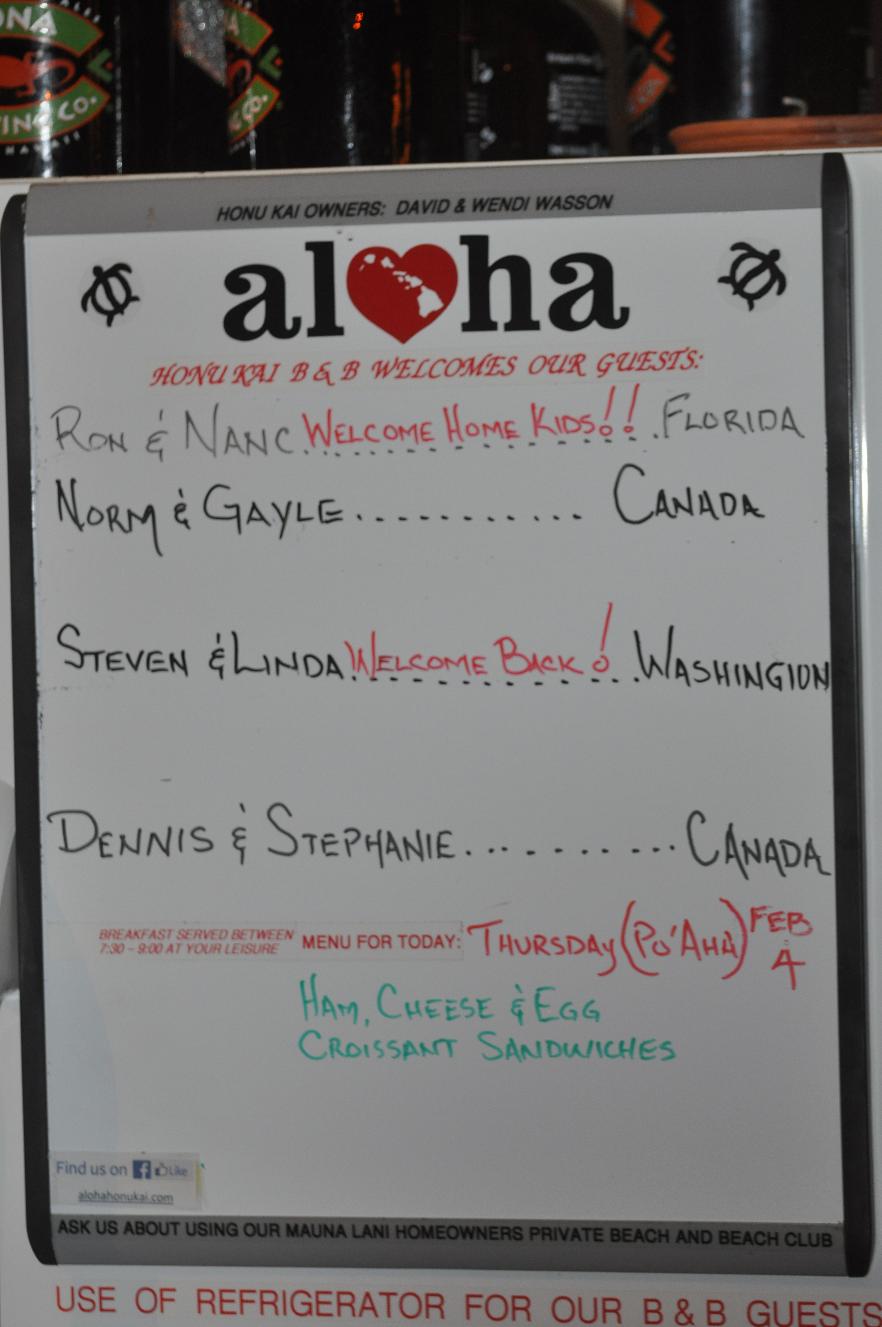 ONA
ING CO.
CO.
HONU KAI OWNERS: DAVID & WENDI WASSON
aloha
HONU KAI B & B WELCOMES OUR GUESTS:
RON & NANC. WELCOME HOME KIDS!! .FLORIDA
NORM & GAYLE............ CANADA
STEVEN & LINDA WELCOME BACK! ...WASHINGTON
DENNIS & STEPHANIE........... CANADA
BREAKFAST SERVED BETWEEN
7:30 – 9:00 AT YOUR LEISURE
MENU FOR TODAY: THURSDAY (PO'AHA) FEB 4
HAM, CHEESE & EGG
CROISSANT SANDWICHES
Find us on f Like
alohahonukai.com
ASK US ABOUT USING OUR MAUNA LANI HOMEOWNERS PRIVATE BEACH AND BEACH CLUB
USE OF REFRIGERATOR FOR OUR B & B GUESTS